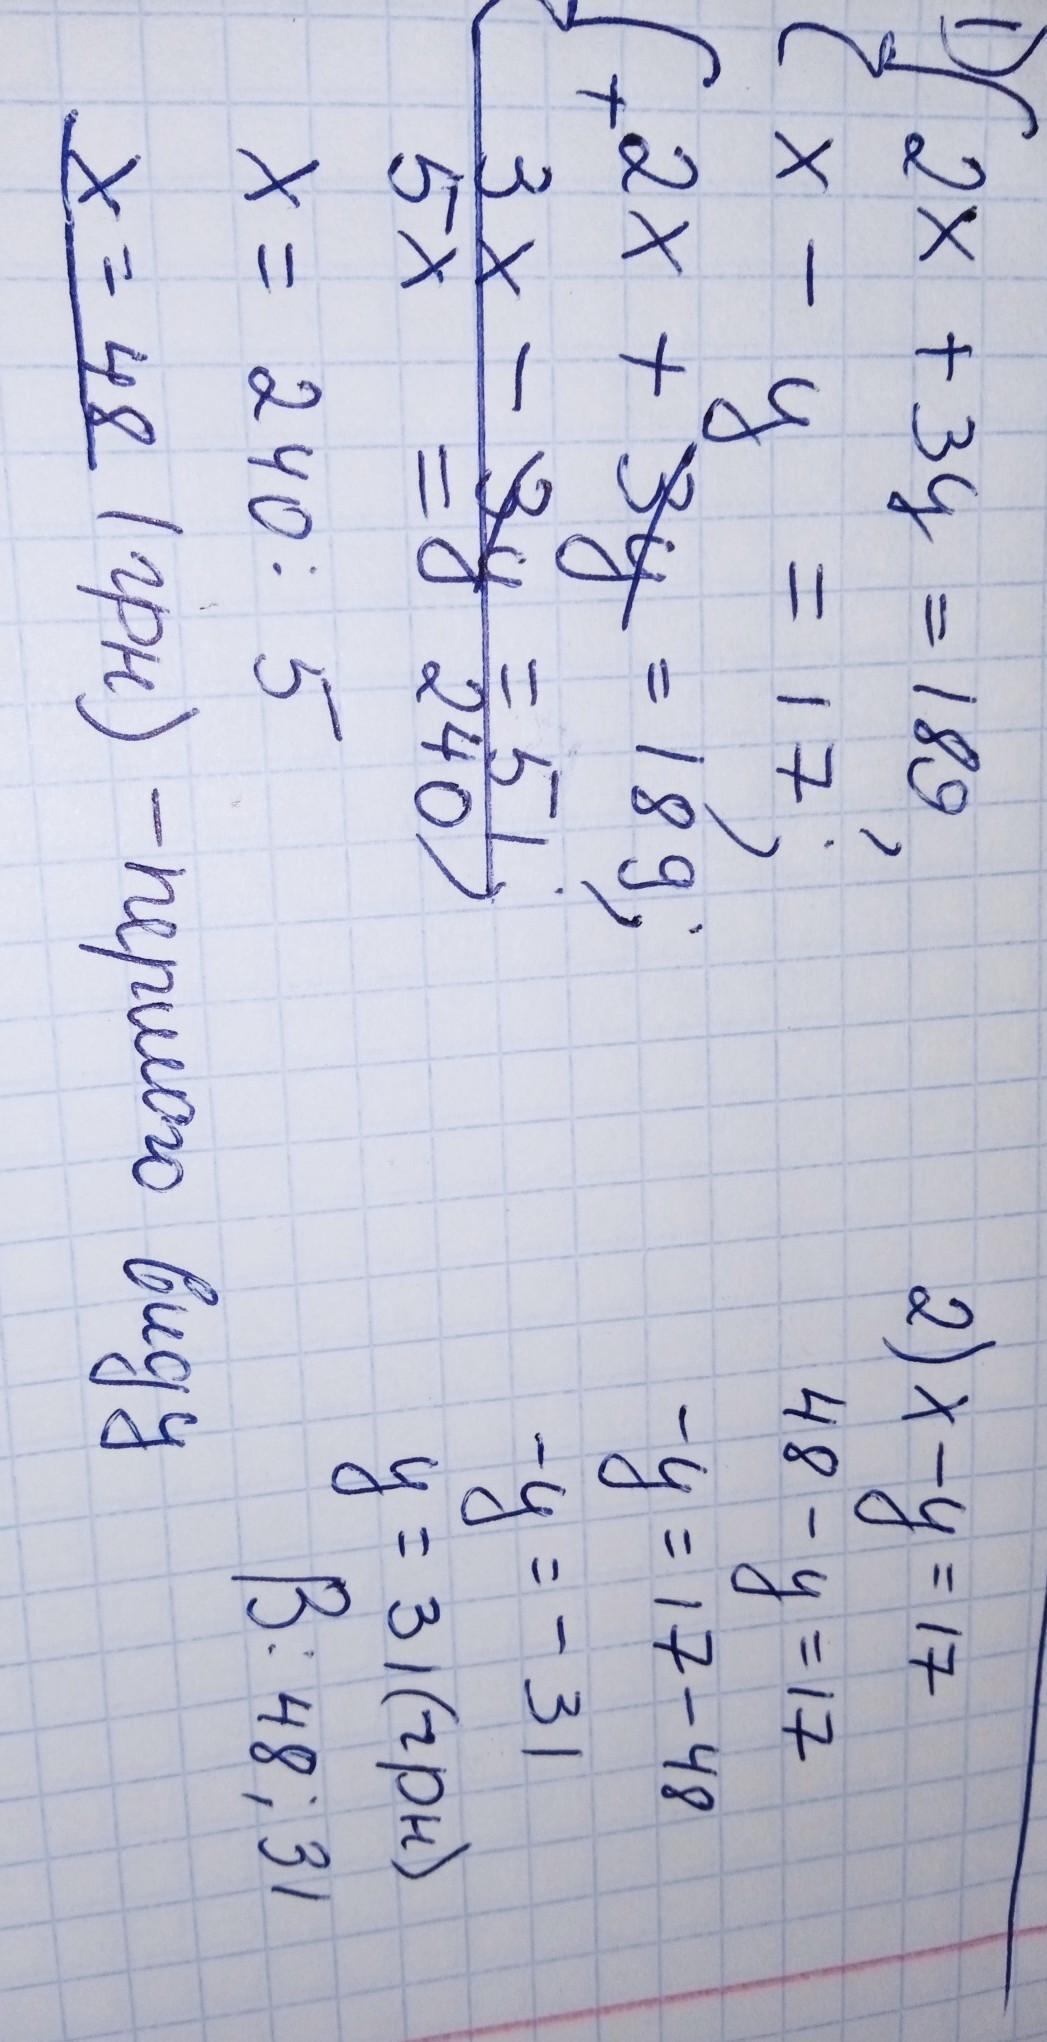 1) { 2x + 3y = 189,
x - y = 17;
{ + 2x + 3y = 189;
3x - 3y = 51;
5x = 240
x = 240 : 5
x = 48 (грн) - першого виду
2) x - y = 17
48 - y = 17
-y = 17 - 48
-y = - 31
y = 31 (грн)
В: 48; 31